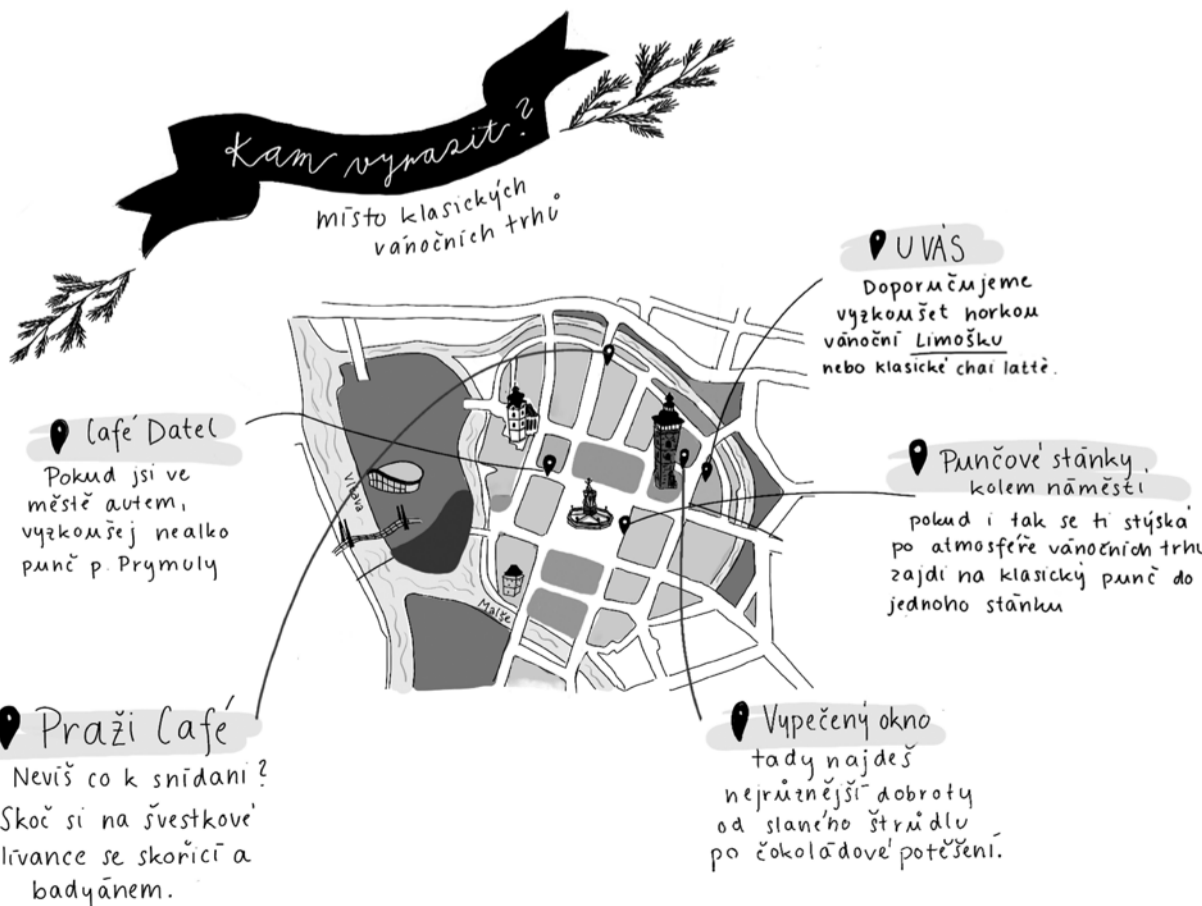 Kam vyrazit?
místo klasických
vánočních trhů
U VÁS
Doporučujeme
vyzkoušet horkou
vánoční Limošku
nebo klasické chai latté.
Café Datel
Pokud jsi ve
městě autem,
vyzkoušej nealko
punč p. Prymuly
Punčové stánky
kolem náměstí
pokud i tak se ti stýská
po atmosféře vánočních trhu
zajdi na klasický punč do
jednoho stánku
Vltava
Malše
Praži Café
Nevíš co k snídani?
Skoč si na švestkové
lívance se skořicí a
badyánem.
Vypečený okno
tady najdeš
nejrůznější dobroty
od slaného štrůdlu
po čokoládové potěšení.